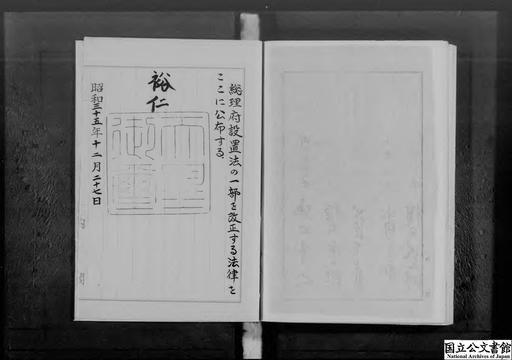 総理府設置法の一部を改正する法律を
ここに公布する。
裕仁
天皇御璽
昭和三十五年十二月二十七日
国立公文書館
National Archives of Japan